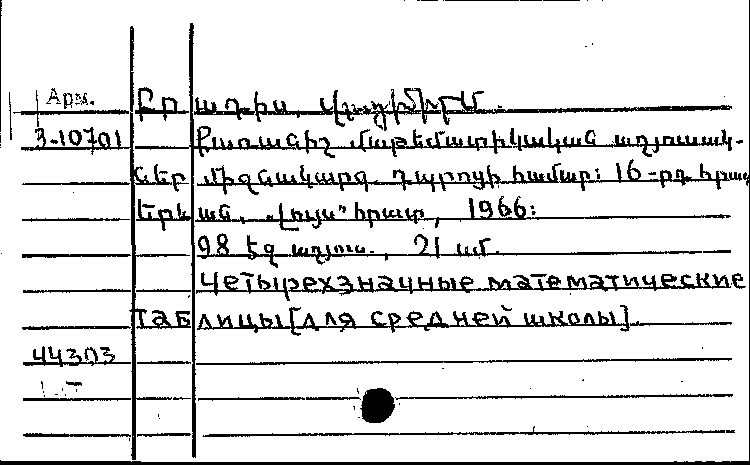 Арм.
Բրադիս, Վլադիմիր Մ.
3-10701 Քառանիշ մաթեմատիկական աղյուսակ-
ներ միջնակարգ դպրոցի համար: 16-րդ հրատ
Երևան, „Լույս" հրատ, 1966:
98 եջ աղյուս., 21 սմ.
Четырехзначные математические
таблицы [для средней школы].
44303